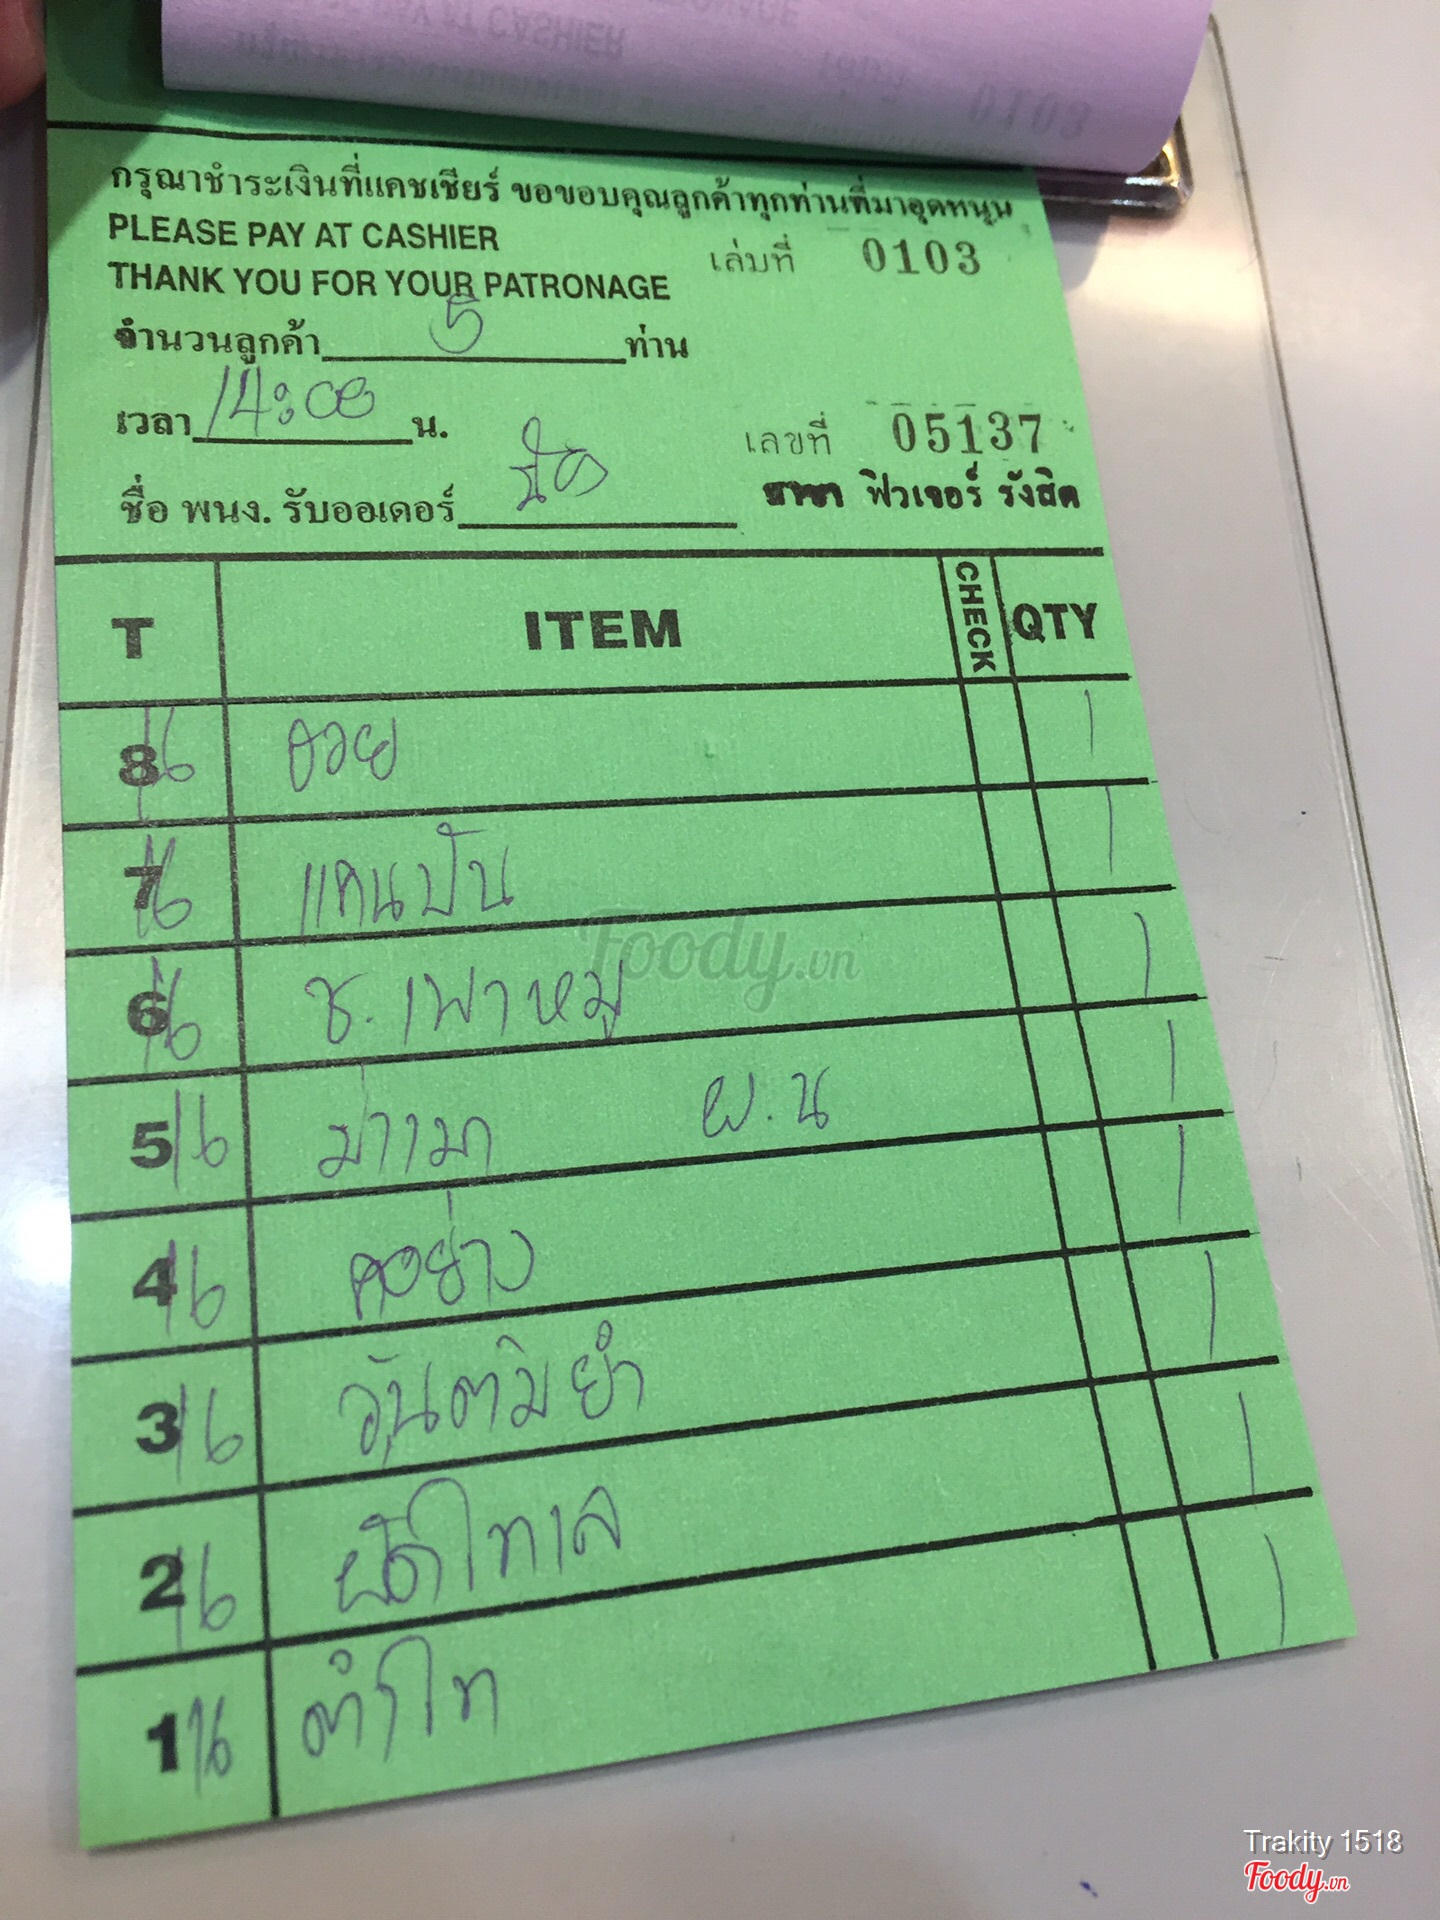 กรุณาชำระเงินที่แคชเชียร์ ขอขอบคุณลูกค้าทุกท่านที่มาอุดหนุน
PLEASE PAY AT CASHIER
THANK YOU FOR YOUR PATRONAGE
เล่มที่ 0103
จำนวนลูกค้า 5 ท่าน
เวลา 14:08 น.
เลขที่ 05137
ชื่อ พนง. รับออเดอร์
สาขา ฟิวเจอร์ รังสิต
T ITEM CHECK QTY
8 1
7 แคนปัน 1
6 ช.เพาหมู 1
5 ม่าเมา ผ.น 1
4 คอย่าง 1
3 วุ้นตมิยำ 1
2 ผัดไทเล 1
1 ตำไท 1
Foody.vn
Trakity 1518
Foody.vn